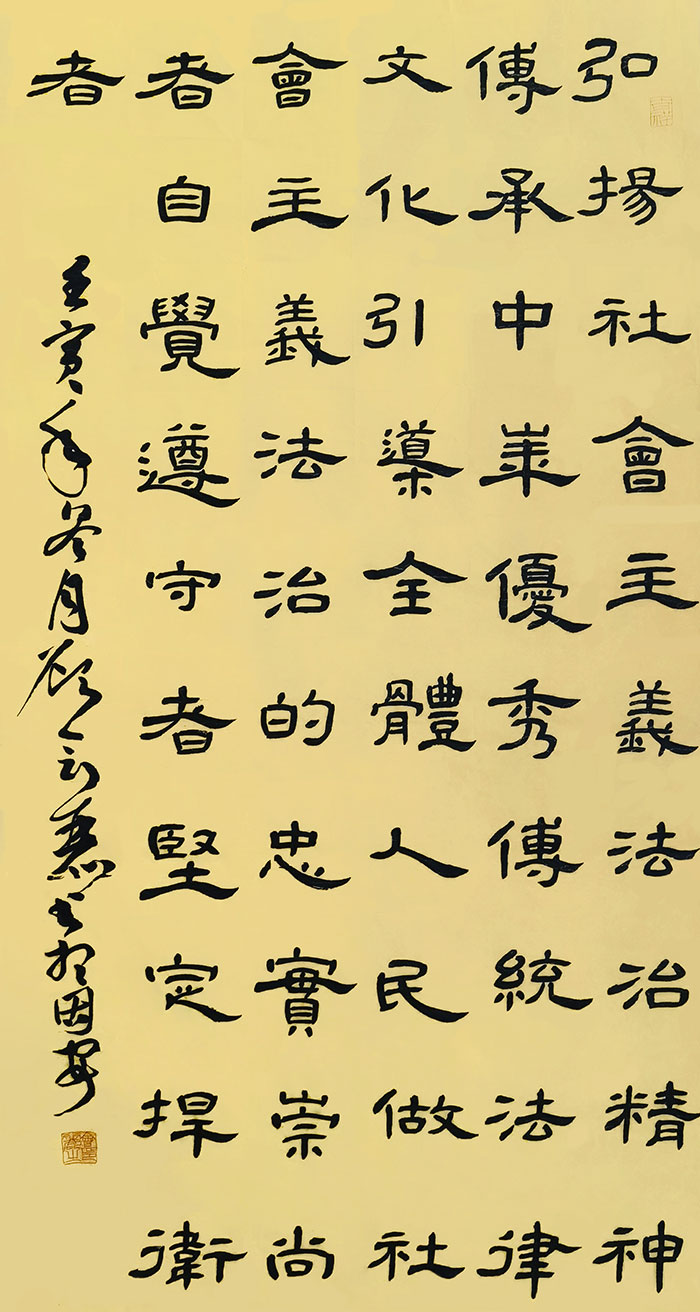 弘揚社會主義法治精神
傳承中華優秀傳統法律
文化引導全體人民做社
會主義法治的忠實崇尚
者自覺遵守者堅定捍衛
者
壬寅年冬月 書於固安